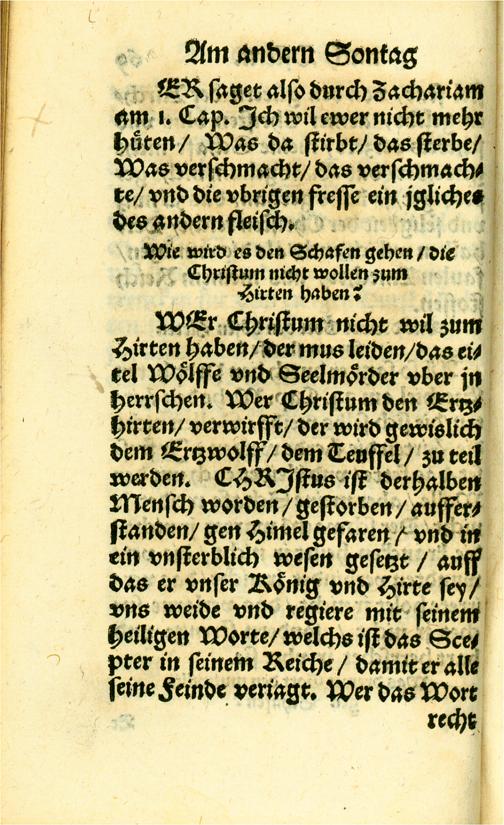 Am andern Sontag
ER saget also durch Zachariam
am 1. Cap. Ich wil ewer nicht mehr
hüten/ Was da stirbt/ das sterbe/
Was verschmacht/ das verschmach⸗
te/ vnd die vbrigen fresse ein jgliches
des andern fleisch.
Wie wird es den Schafen gehen/ die
Christum nicht wollen zum
Hirten haben?
WEr Christum nicht wil zum
Hirten haben/ der mus leiden/ das ei⸗
tel Wölffe vnd Seelmörder vber jn
herrschen. Wer Christum den Ertz⸗
hirten/ verwirfft/ der wird gewislich
dem Ertzwolff/ dem Teuffel/ zu teil
werden. CHRIstus ist derhalben
Mensch worden/ gestorben/ auffer⸗
standen/ gen Himel gefaren/ vnd in
ein vnsterblich wesen gesetzt/ auff
das er vnser König vnd Hirte sey/
vns weide vnd regiere mit seinem
heiligen Worte/ welchs ist das Sce⸗
pter in seinem Reiche/ damit er alle
seine Feinde veriagt. Wer das Wort
recht